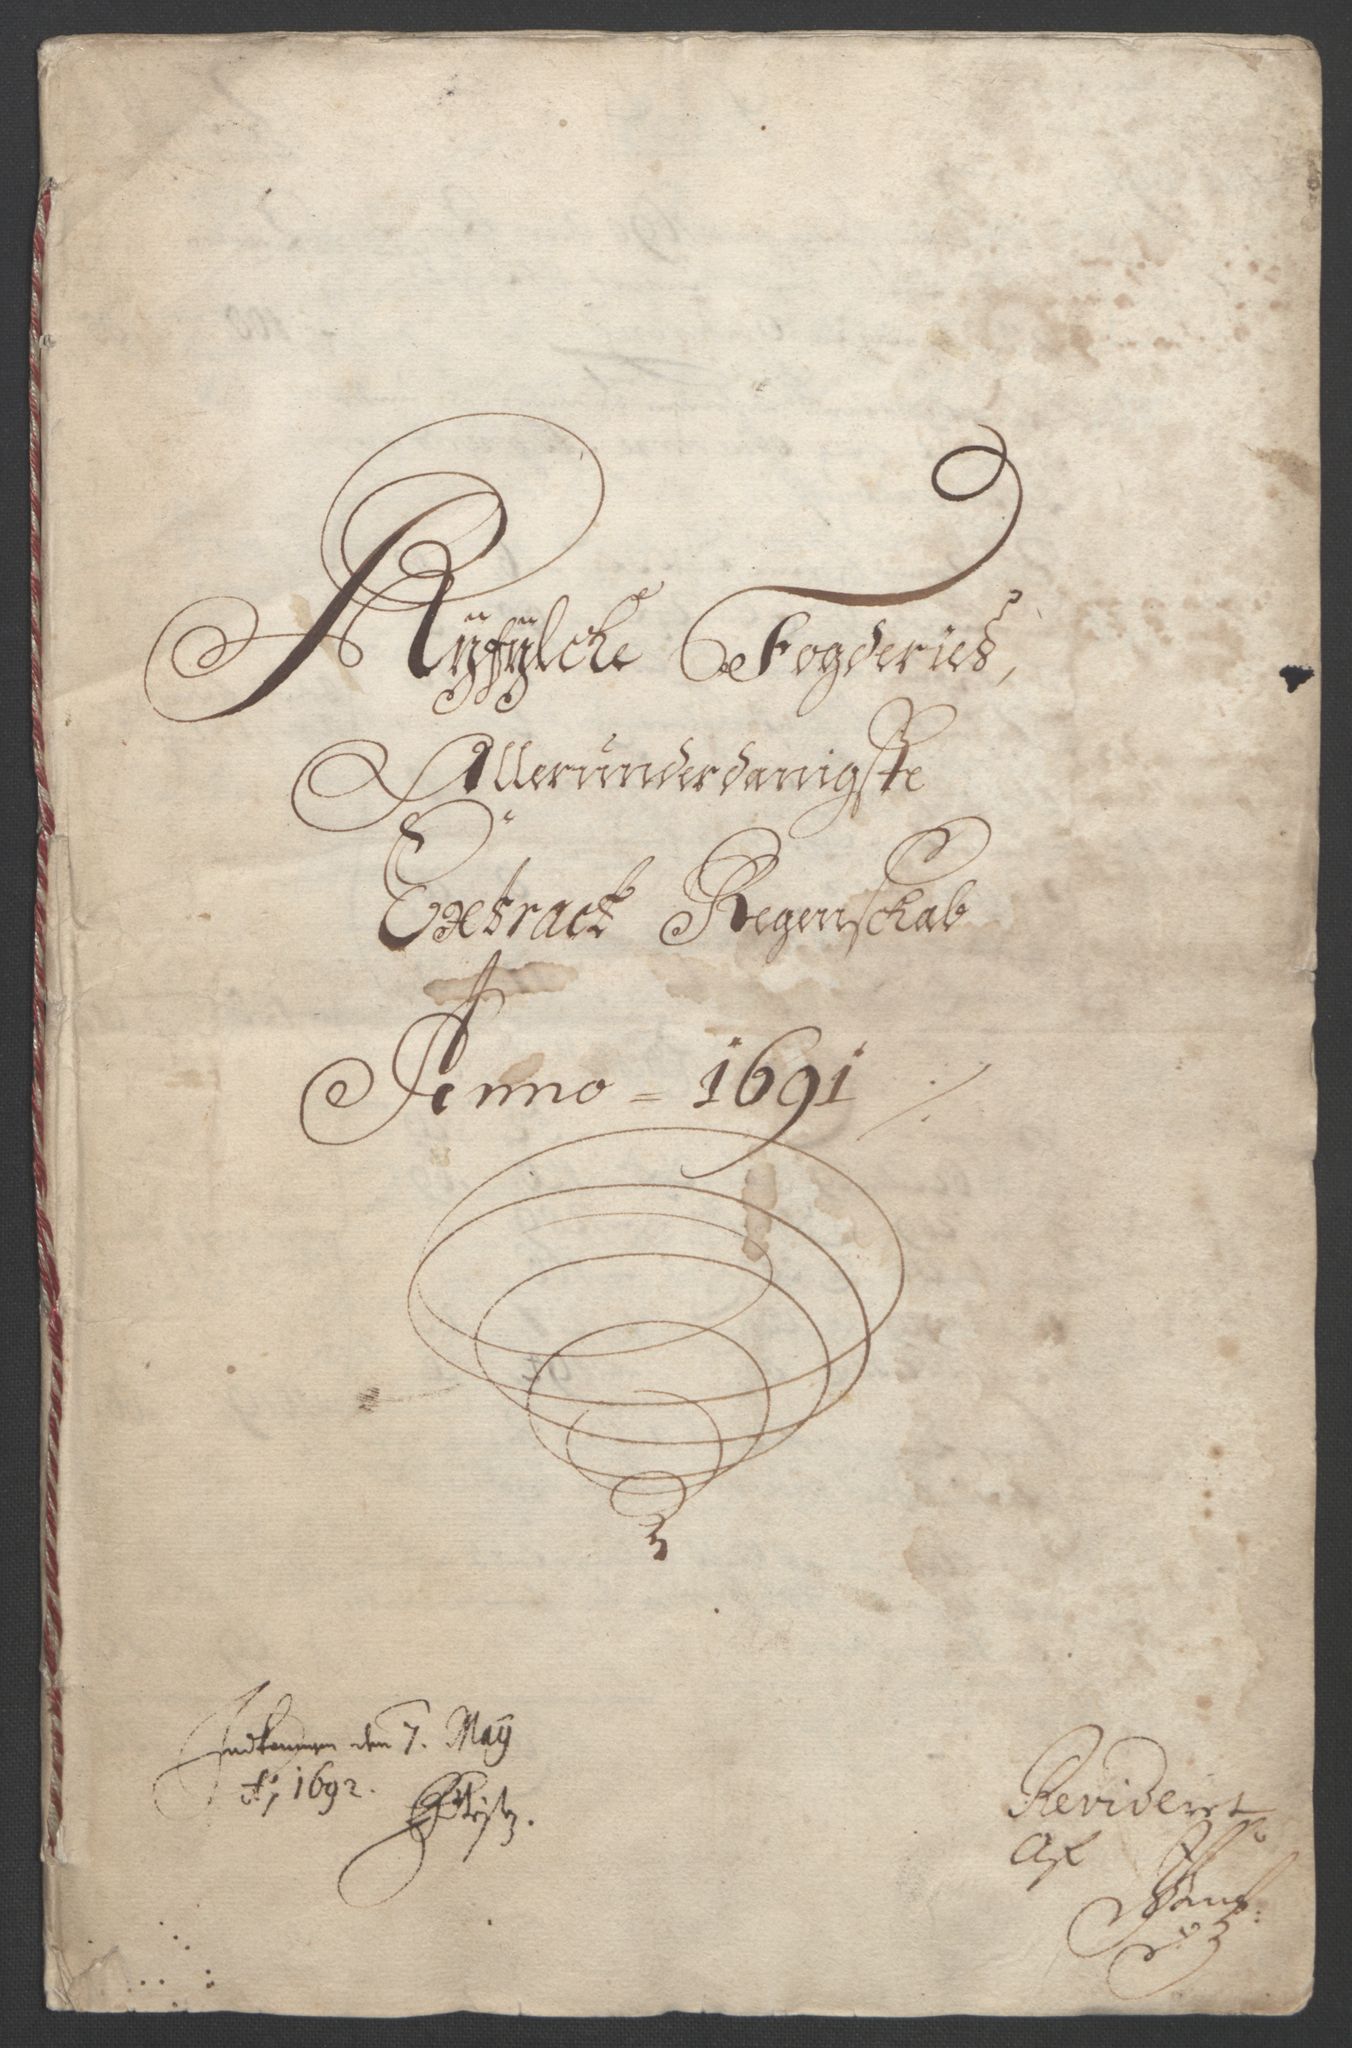 Ryfylcke Fogderies,
Allerunderdanigste
Extract Regenskab
Anno = 1691 ./.
Indkommen den 7. Maÿ
Ao 1692.
Revideret
Af